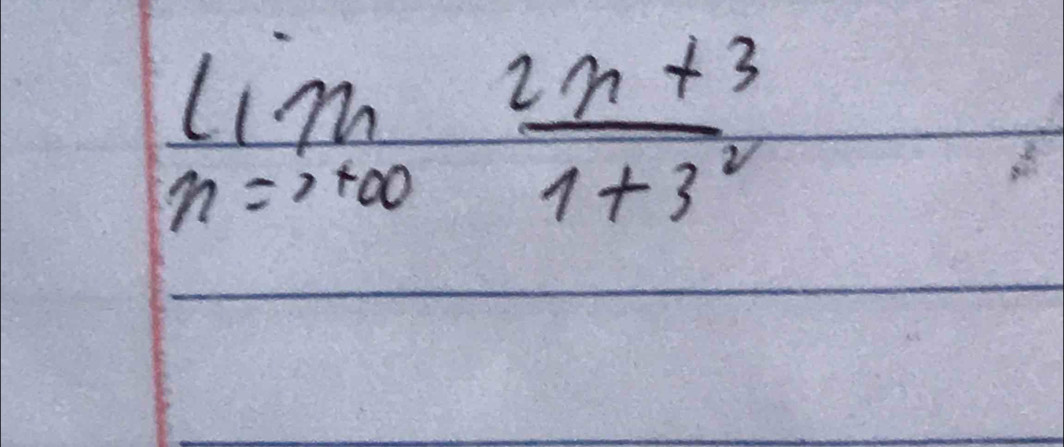 lim 2n + 3
n => +∞ 1 + 3²